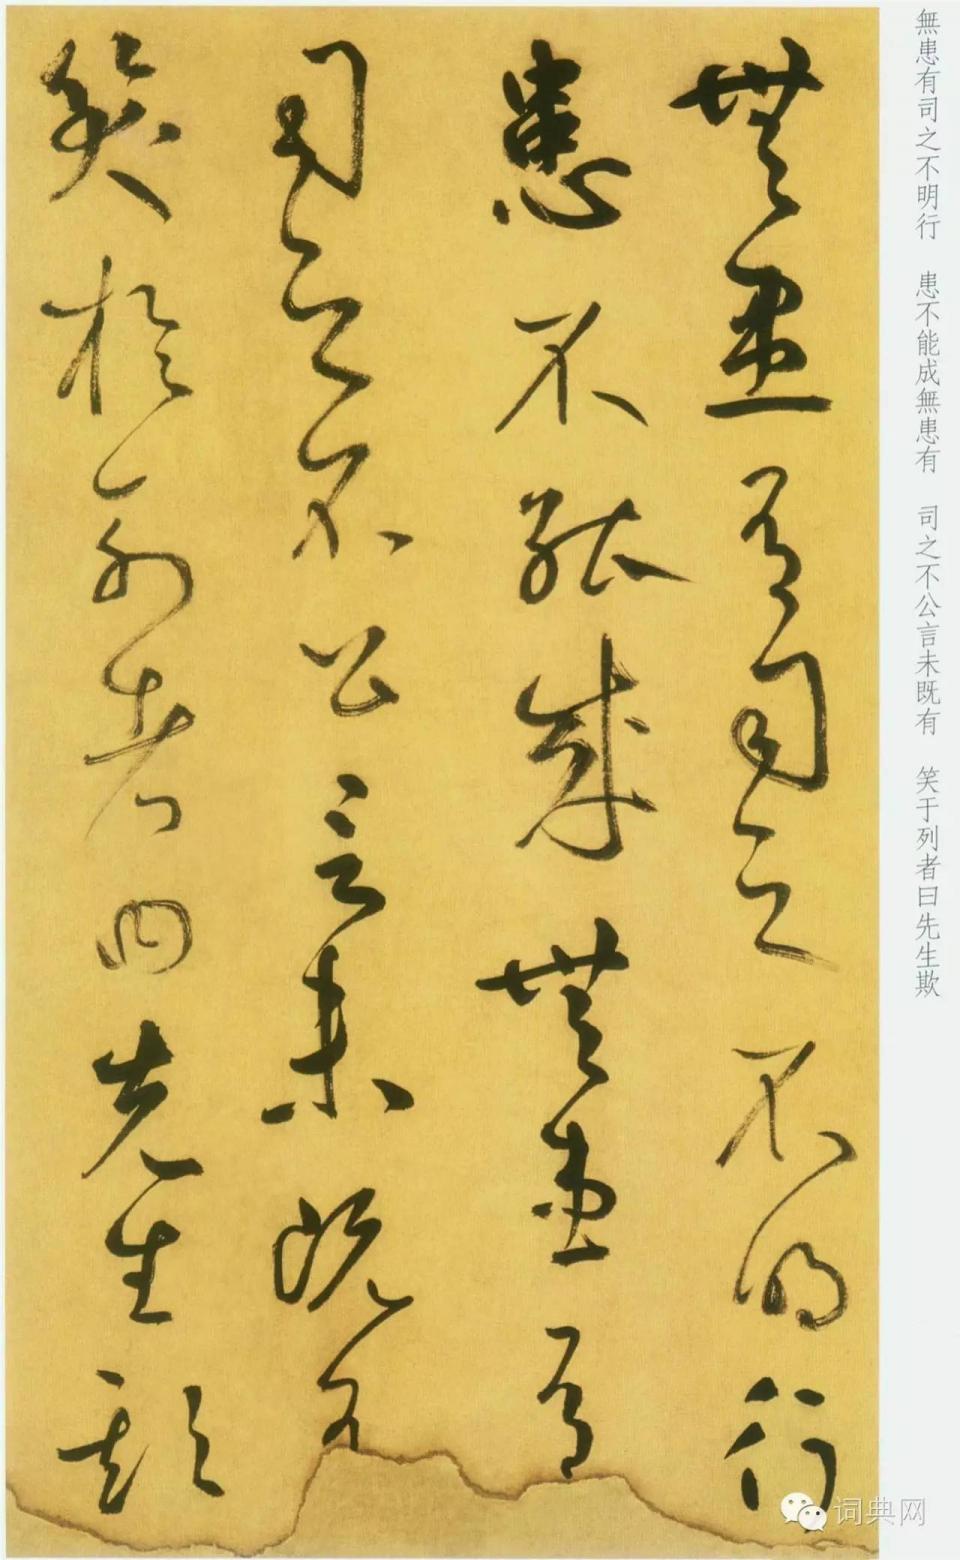 無患有司之不明行
患不能成無患有
司之不公言未既有
笑于列者曰先生欺
無患有司之不明行　患不能成無患有　司之不公言未既有　笑于列者曰先生欺
词典网